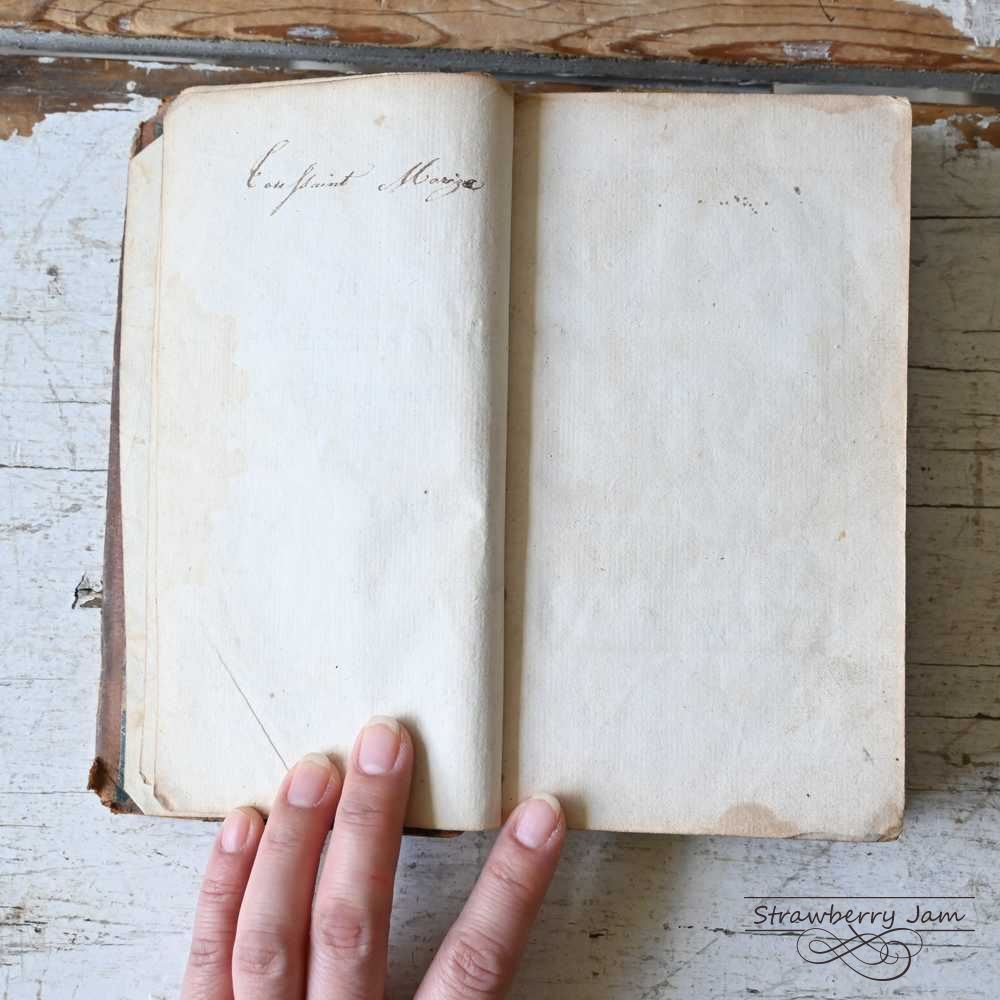 Toussaint Mariga
Strawberry Jam